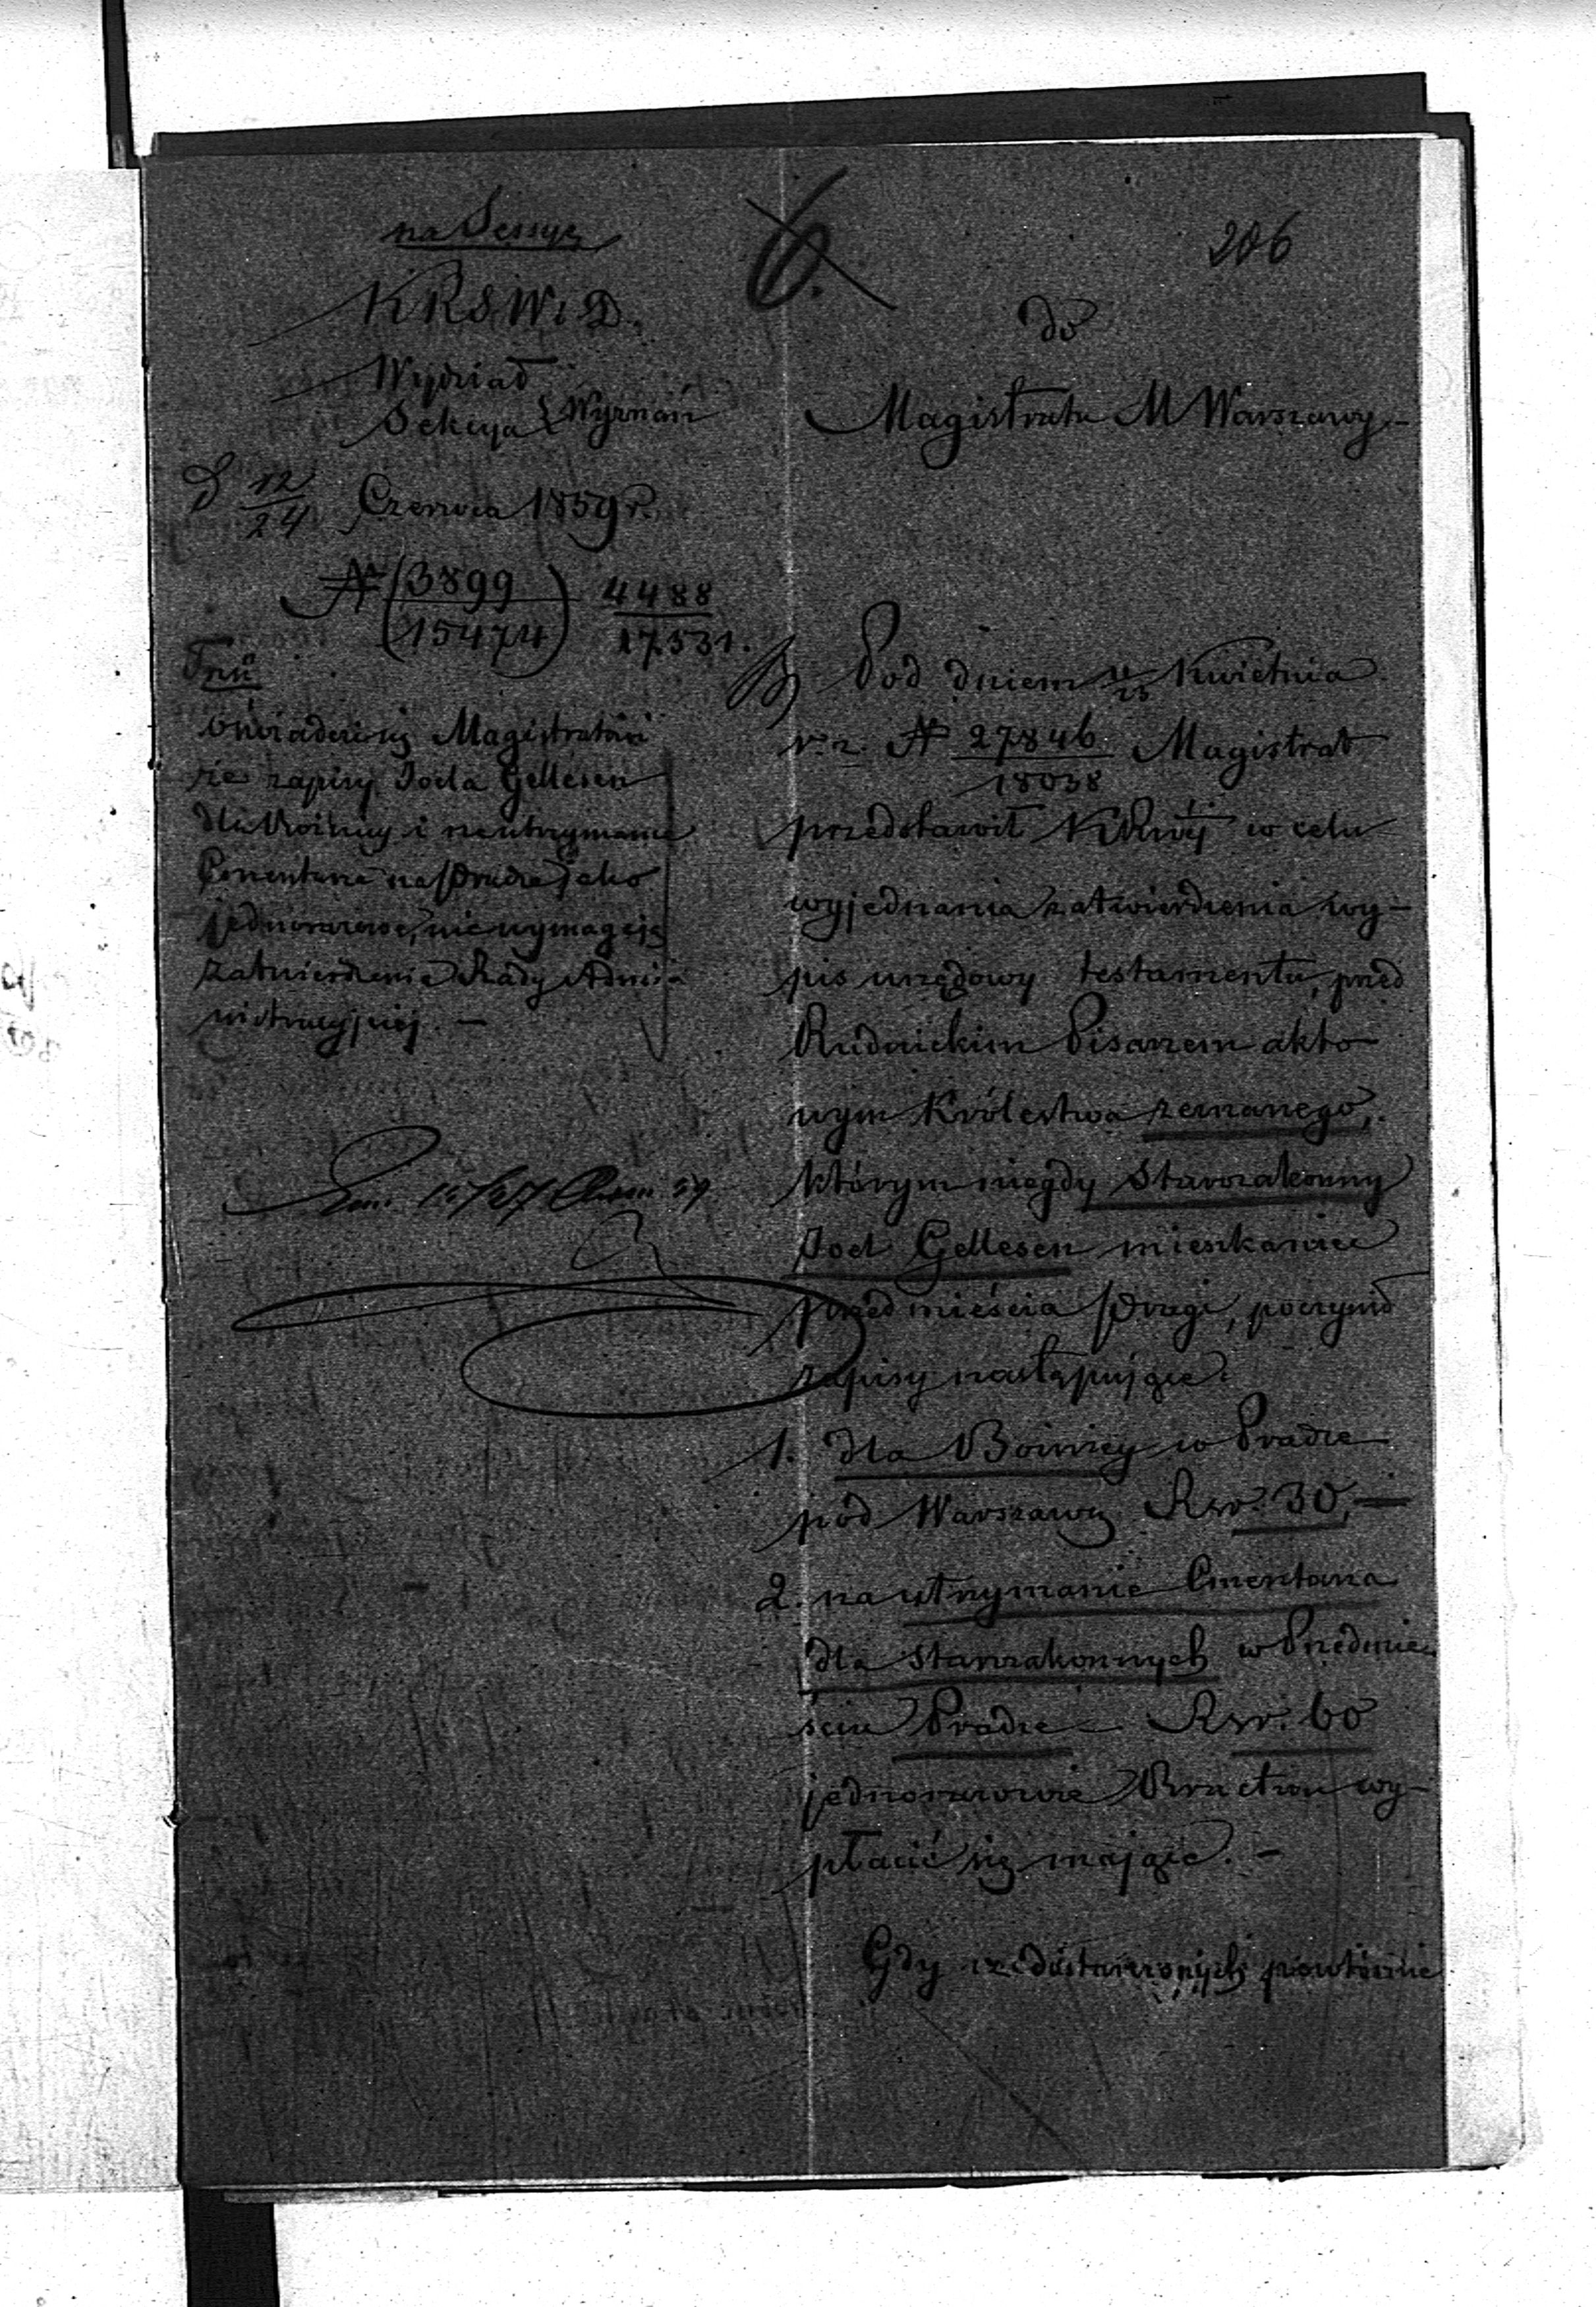 na Sessyę
6.
206
KRSW i D.
Wydział
Sekcya } Wyznań
D 12/24 Czerwca 1859 r.
N (3899/15474) 4488/17531.
Treść
oświadczenie Magistratowi
że zapisy Joela Gellesen
dla Bożnicy i na utrzymanie
Cmentarza na Pradze jako
jednorazowe, nie wymagają
zatwierdzenia Rady Admi-
nistracyjnej. —
15/27 59
do
Magistratu M Warszawy.—
Pod dniem 11/23 Kwietnia
r. z. N 27846/18038 Magistrat
przedstawił KRwéj w celu
wyjednania zatwierdzenia wy-
pis urzędowy testamentu, przed
Rudnickim Pisarzem akto-
wym Królestwa zeznanego,
którym niegdy Starozakonny
Joel Gellesen mieszkaniec
przedmieścia Pragi, poczynił
zapisy następujące:
1. dla Bożnicy w Pradze
pod Warszawą Rsr. 30,—
2. na utrzymanie Cmentarza
dla starozakonnych w Przedmie-
ściu Pradze — Rsr. 60
jednorazowie Bractwu wy-
płacić się mające. —
Gdy przedstawionych powtórnie